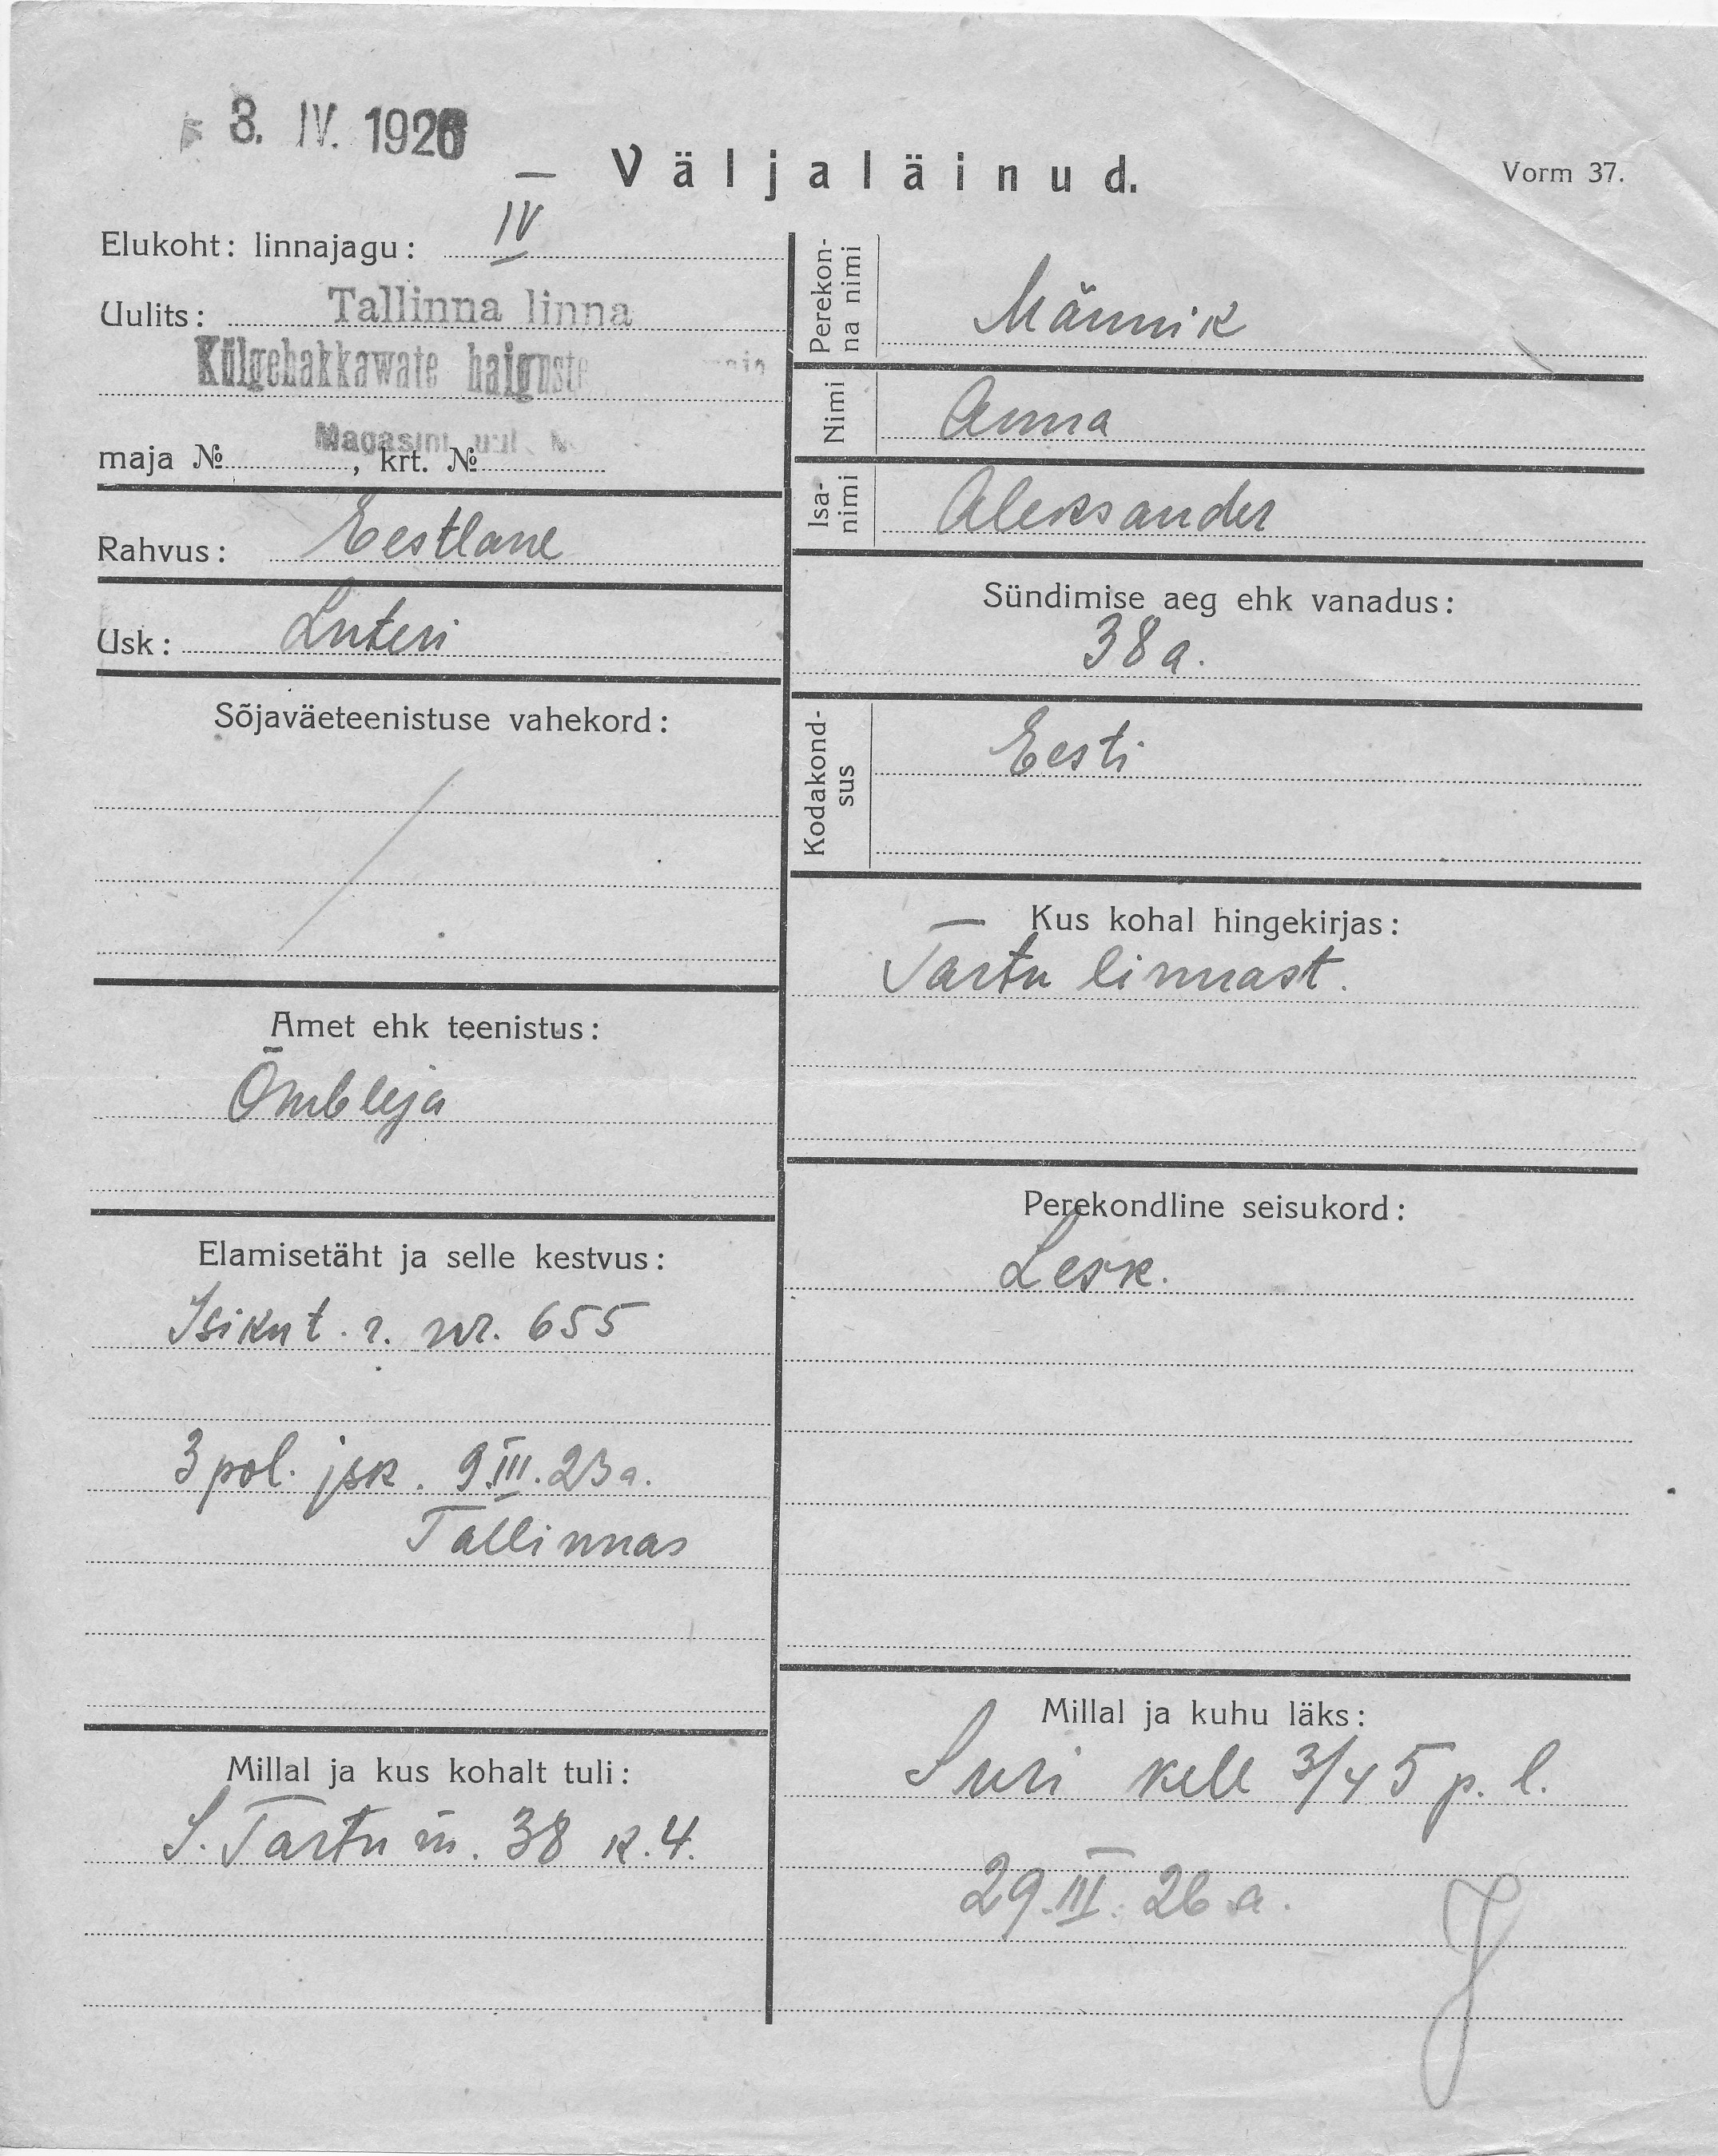 3. IV. 1926
Väljaläinud.
Vorm 37.
Elukoht: linnajagu: IV
Uulits: Tallinna linna
Külgehakkawate haiguste
maja № , krt. №
Magasini uul. №
Rahvus: Eestlane
Usk: Luteri
Sõjaväeteenistuse vahekord:
Amet ehk teenistus:
Õmbleja
Elamisetäht ja selle kestvus:
Isikut. r. nr. 655
3 pol. jsk. 9.III.23 a.
Tallinnas
Millal ja kus kohalt tuli:
S. Tartu m. 38 k. 4.
Perekon-
na nimi
Männik
Nimi
Anna
Isa-
nimi
Aleksander
Sündimise aeg ehk vanadus:
38 a.
Kodakond-
sus
Eesti
Kus kohal hingekirjas:
Tartu linnast.
Perekondline seisukord:
Lesk.
Millal ja kuhu läks:
Suri kell 3/4 5 p. l.
29.III.26 a.